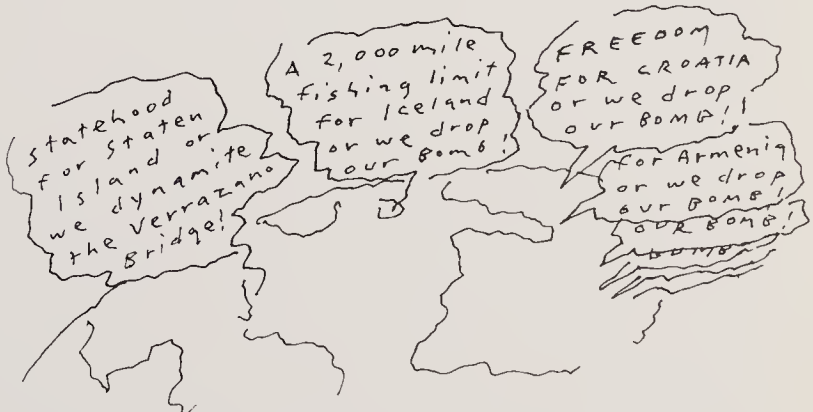 statehood
for Staten
Island or
we dynamite
the Verrazano
Bridge!
A 2,000 mile
fishing limit
for Iceland
or we drop
our Bomb!
FREEDOM
FOR CROATIA
or we drop
our BOMB!!
for Armenia
or we drop
our BOMB!
OUR BOMB!
BOMB